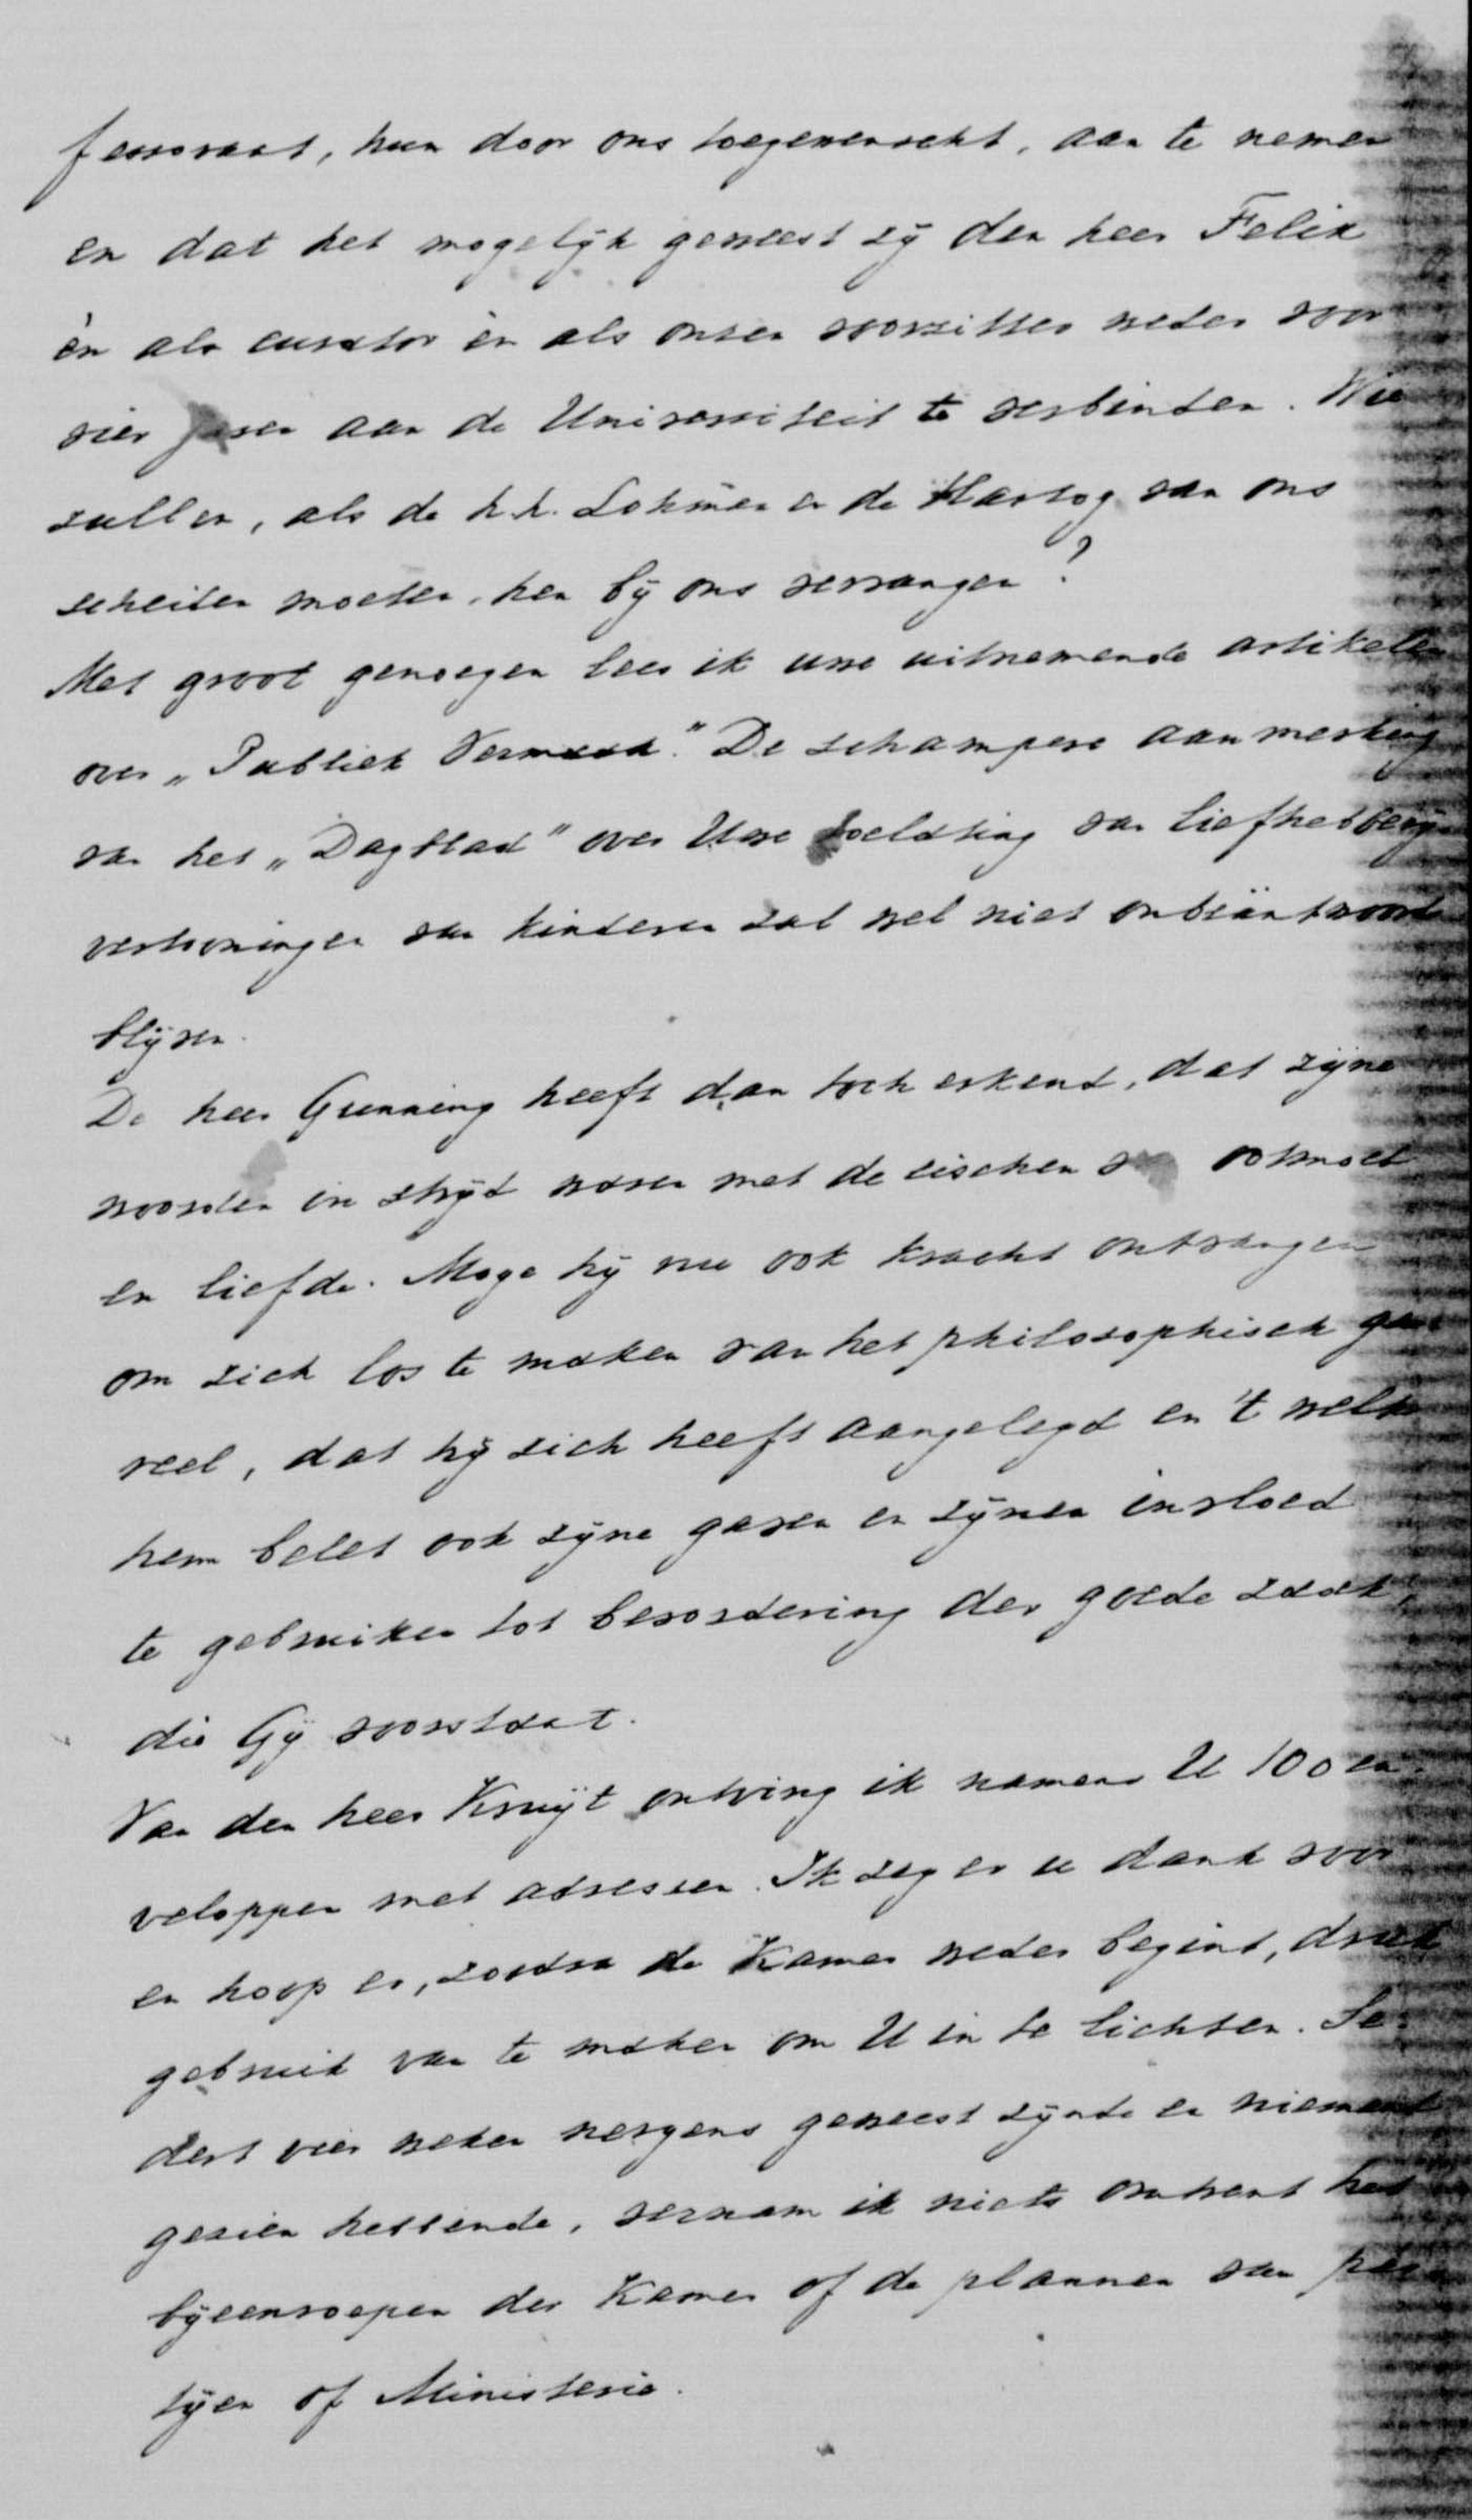 fessoraat, hun door ons toegewenscht, aan te nemen
en dat het mogelijk geweest zij den heer Felix
èn als curator èn als onzen voorzitter weder voor
vier jaren aan de Universiteit te verbinden. Wie
zullen, als de h.h. Lohman en de Hartog van ons
scheiden moeten, hen bij ons vervangen?
Met groot genoegen lees ik uwe uitnemende artikelen
over „Publiek Vermaak." De schampere aanmerking
van het „Dagblad" over Uwe melding van liefhebberij-
vertooningen van kinderen zal wel niet onbeäntwoord
blijven.
De heer Gunning heeft dan toch erkend, dat zijne
woorden in strijd waren met de eischen van ootmoed
en liefde. Moge hij nu ook kracht ontvangen
om zich los te maken van het philosophisch ga-
reel, dat hij zich heeft aangelegd en 't welk
hem belet ook zijne gaven en zijnen invloed
te gebruiken tot bevordering der goede zaak,
die Gij voorstaat.
Van den heer Kruijt ontving ik namens U 100 en-
veloppen met adressen. Ik zeg er u dank voor
en hoop er, zoodra de Kamer weder begint, druk
gebruik van te maken om U in te lichten. Se-
dert vier weken nergens geweest zijnde en niemand
gezien hebbende, vernam ik niets omtrent het
bijeenroepen der Kamer of de plannen van par-
tijen of Ministerie.